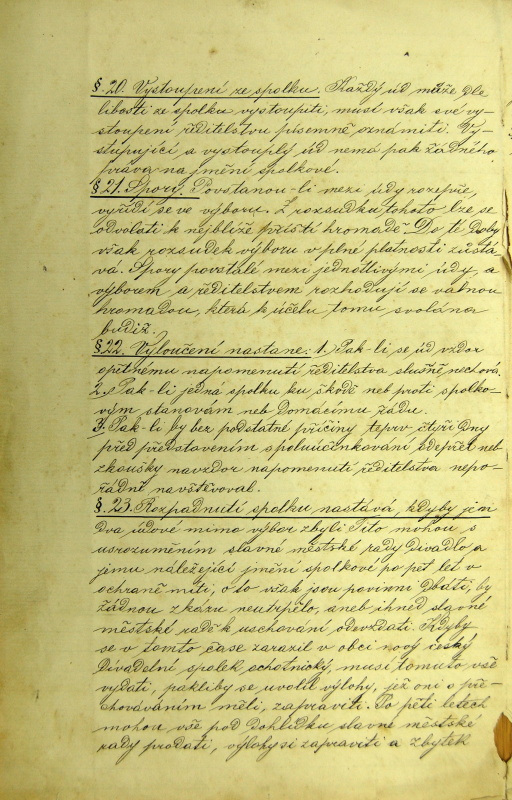 §. 20. Vystoupení ze spolku. Každý úd může dle
libosti ze spolku vystoupiti, musí však své vy-
stoupení ředitelstvu písemně oznámiti. Vy-
stupující a vystouplý úd nemá pak žádného
práva na jmění spolkové.
§. 21. Spory. Povstanou-li mezi údy rozepře,
vyřídí se ve výboru. Z rozsudku tohoto lze se
odvolati k nejbliže příští hromadě. Do té doby
však rozsudek výboru v plné platnosti zůstá-
vá. Spory povstalé mezi jednotlivými údy, a
výborem a ředitelstvem rozhodují se valnou
hromadou, která k účelu tomu svolána
budiž.
§. 22. Vyloučení nastane: 1. Pak-li se úd vzdor
opětnému napomenutí ředitelstva slušně nechová.
2. Pak-li jedná spolku ku škodě neb proti spolko-
vým stanovám neb domácímu řádu.
3. Pak-li by bez podstatné příčiny teprv čtyři dny
před představením spoluúčinkování odepřel neb
zkoušky navzdor napomenutí ředitelstva nepo-
řádně navštěvoval.
§. 23. Rozpadnutí spolku nastává, kdyby jen
dva údové mimo výbor zbyli Tito mohou s
usrozuměním slavné městské rady divadlo a
jemu náležející jmění spolkové po pět let v
ochraně míti, o to však jsou povinni dbáti, by
žádnou zkázu neutrpělo, aneb ihned slavné
městské radě k uschování odevzdati. Kdyby
se v tomto čase zarazil v obci nový český
divadelní spolek ochotnický, musí tomuto vše
vydati, pakliby se uvolil výlohy, jež oni o pře-
chováváním měli, zapraviti. Po pěti letech
mohou vše pod dohlídku slavné městské
rady prodati, výlohy si zapraviti a zbytek